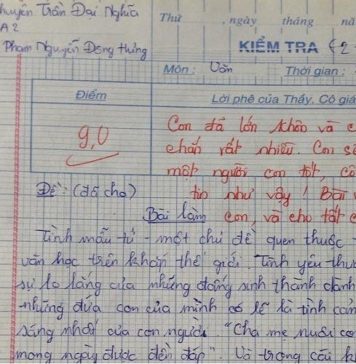 huyên Trần Đại Nghĩa
Thứ , ngày tháng nă
A2
Phạm Nguyễn Đông
KIỂM TRA
Môn: Văn Thời gian:
Điểm Lời phê của Thầy, Cô giá
9,0
Con đã lớn khôn và c
chắn rất nhiều. Con sẽ
một người con tốt, cô
tin như vậy! Bài
con, và cho tất c
Đề: (đã cho)
Bài làm
Tình mẫu tử - một chủ đề quen thuộc
văn học trên khắp thế giới. Tình yêu thư
sự lo lắng của những đấng sinh thành dành
những đứa con của mình có lẽ là tình cảm
sáng nhất của con người. "Cha mẹ nuôi co
mong ngày được đền đáp". Và trong câu